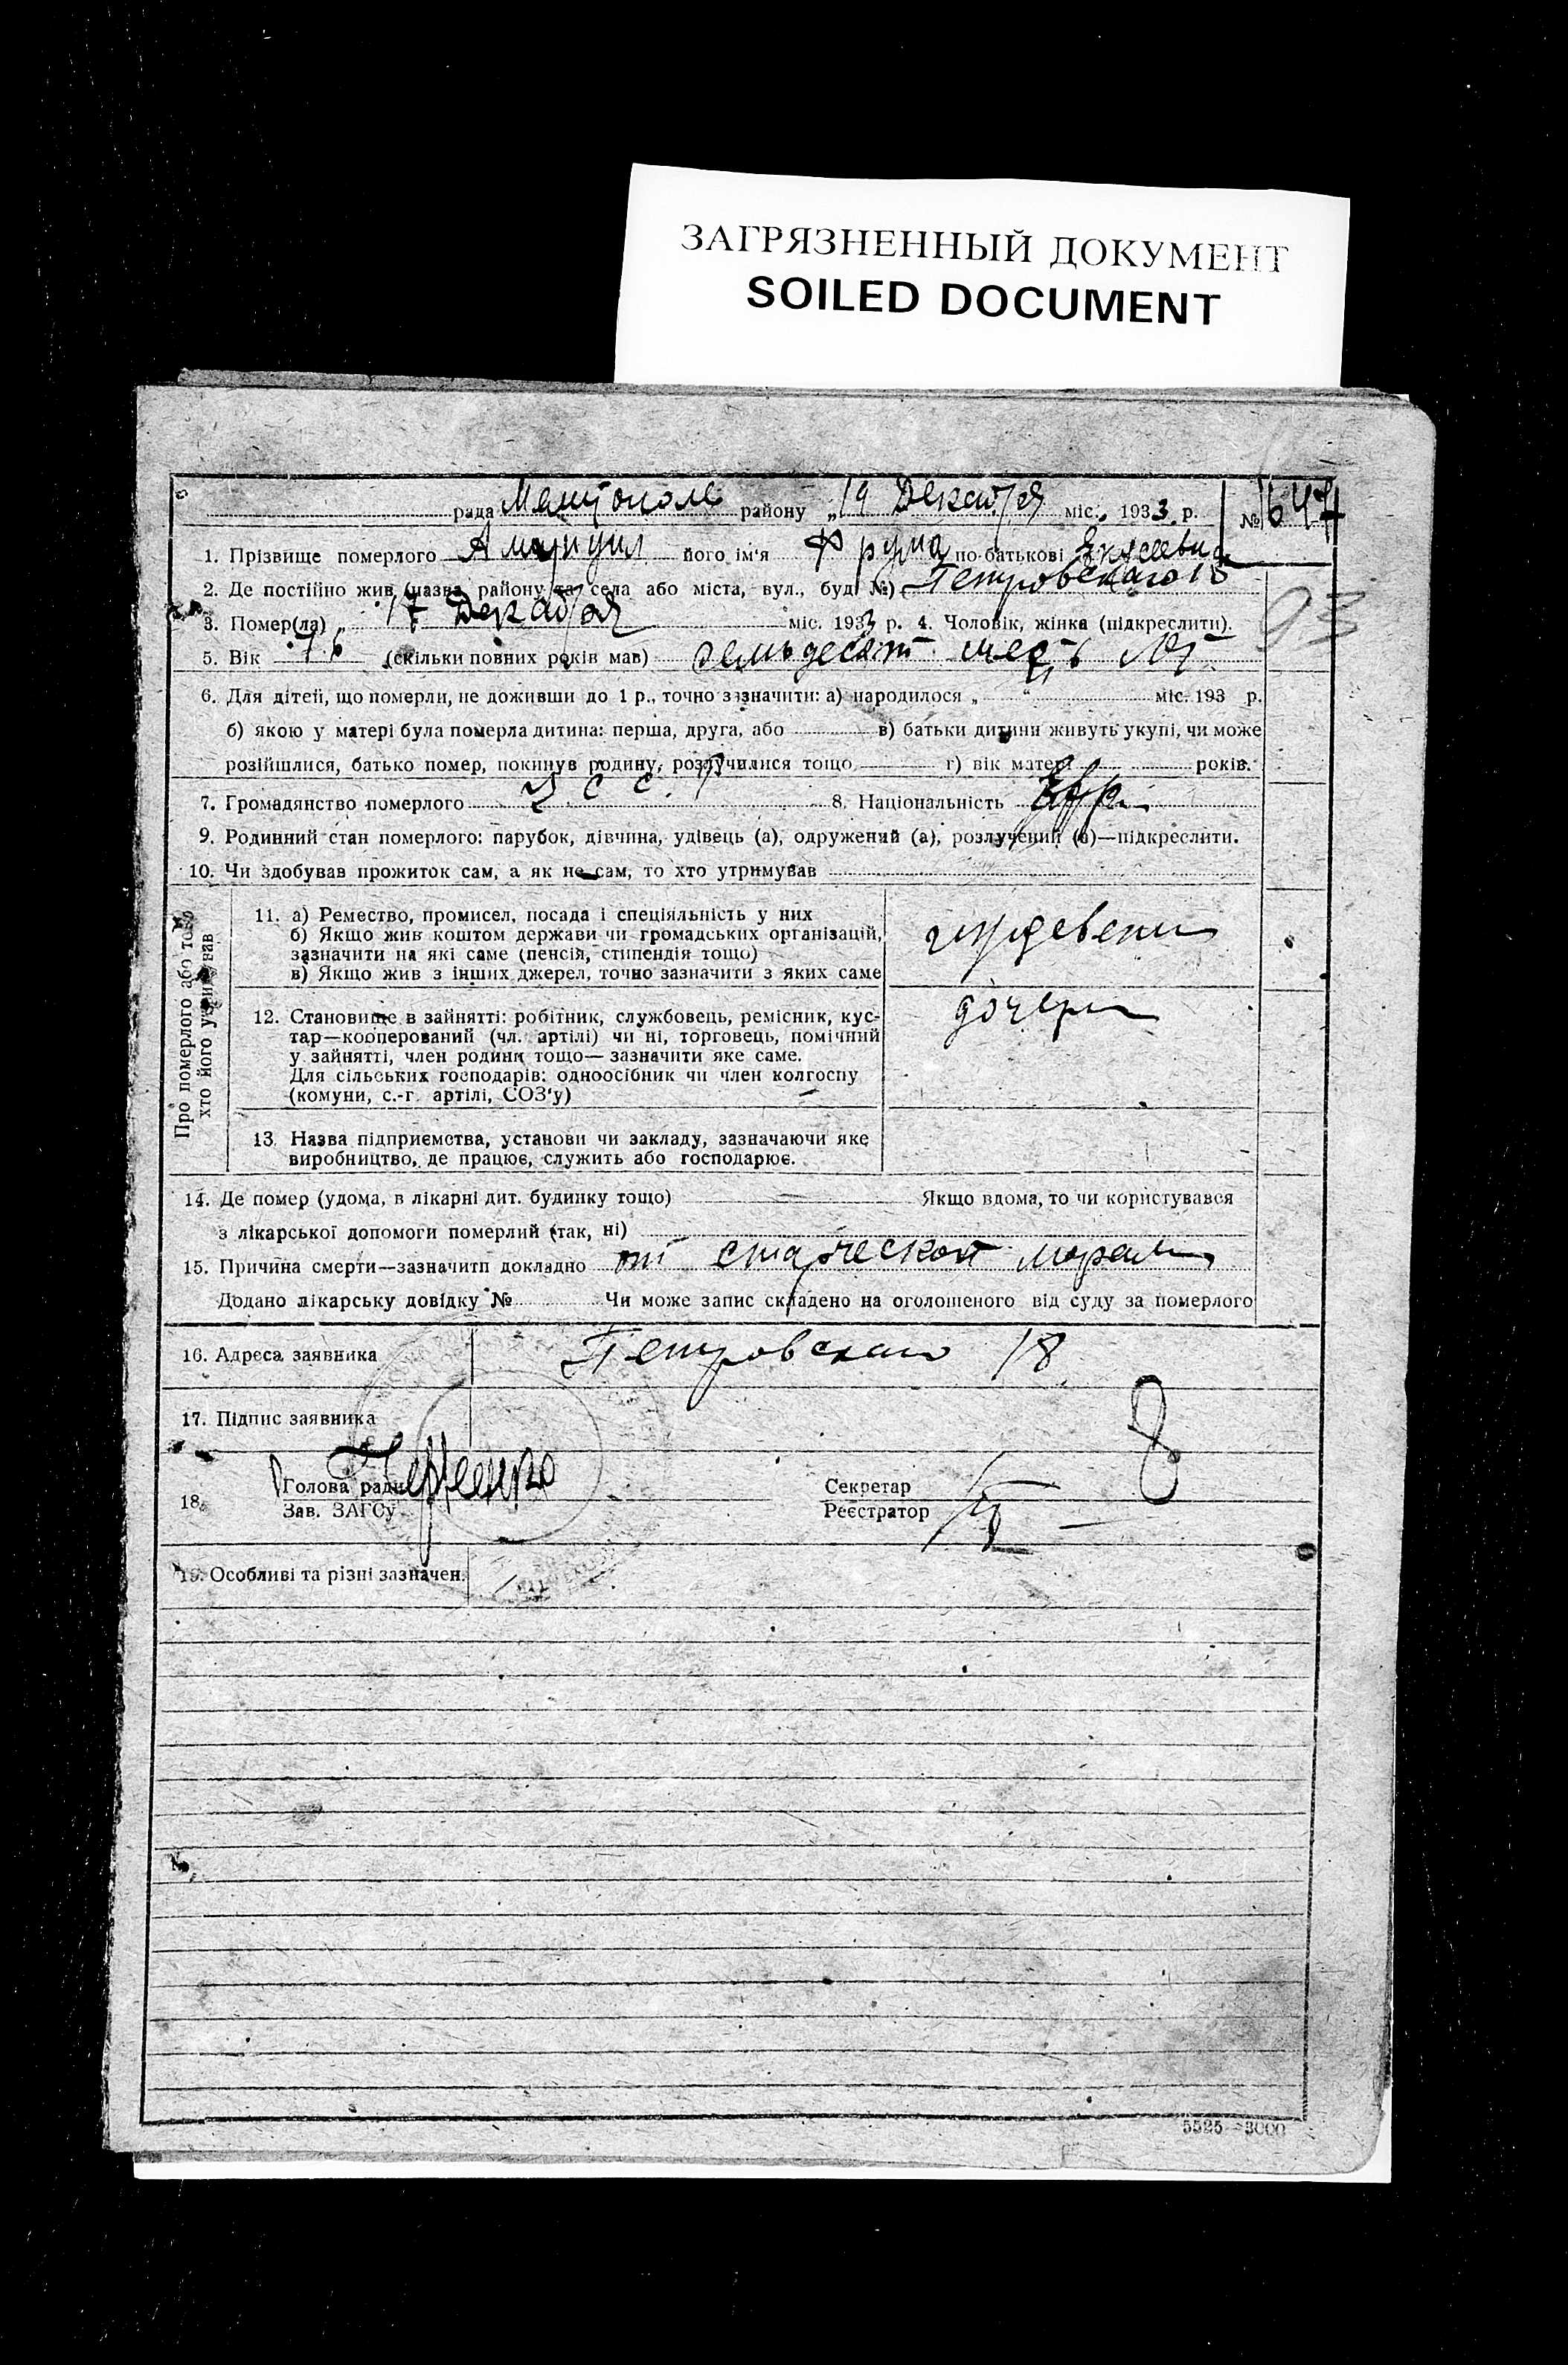 ЗАГРЯЗНЕННЫЙ ДОКУМЕНТ
SOILED DOCUMENT
рада району „19 Декабря міс. 1933 р. № 1647
1. Прізвище померлого його ім'я Фрума по-батькові
2. Де постійно жив (назва району та села або міста, вул., буд №) Петровского 18
3. Помер(ла) „17 Декабря міс. 1933 р. 4. Чоловік, жінка (підкреслити).
5. Вік 76 (скільки повних років мав) семьдесят шесть лет
6. Для дітей, що померли, не доживши до 1 р., точно зазначити: а) народилося „ “ міс. 193 р.
б) якою у матері була померла дитина: перша, друга, або в) батьки дитини живуть укупі, чи може
розійшлися, батько помер, покинув родину, розлучилися тощо г) вік матері років.
7. Громадянство померлого У С С Р 8. Національність Евр.
9. Родинний стан померлого: парубок, дівчина, удівець (а), одружений (а), розлучений (а)—підкреслити.
10. Чи здобував прожиток сам, а як не сам, то хто утримував
Про померлого або того хто його утримував
11. а) Ремество, промисел, посада і спеціяльність у них
б) Якщо жив коштом держави чи громадських організацій,
зазначити на які саме (пенсія, стипендія тощо)
в) Якщо жив з інших джерел, точно зазначити з яких саме
иждевени
12. Становище в зайнятті: робітник, службовець, ремісник, кус-
тар—кооперований (чл. артілі) чи ні, торговець, помічний
у зайнятті, член родини тощо— зазначити яке саме.
Для сільських господарів: одноосібник чи член колгоспу
(комуни, с.-г. артілі, СОЗ'у)
дочери
13. Назва підприємства, установи чи закладу, зазначаючи яке
виробництво, де працює, служить або господарює.
14. Де помер (удома, в лікарні дит. будинку тощо) Якщо вдома, то чи користувався
з лікарської допомоги померлий (так, ні)
15. Причина смерти—зазначити докладно от старческой
Додано лікарську довідку № Чи може запис складено на оголошеного від суду за померлого
16. Адреса заявника Петровского 18
17. Підпис заявника
8
18. Голова ради
Зав. ЗАГСу
Секретар
Реєстратор
19. Особливі та різні зазначен.
93
5525—3000